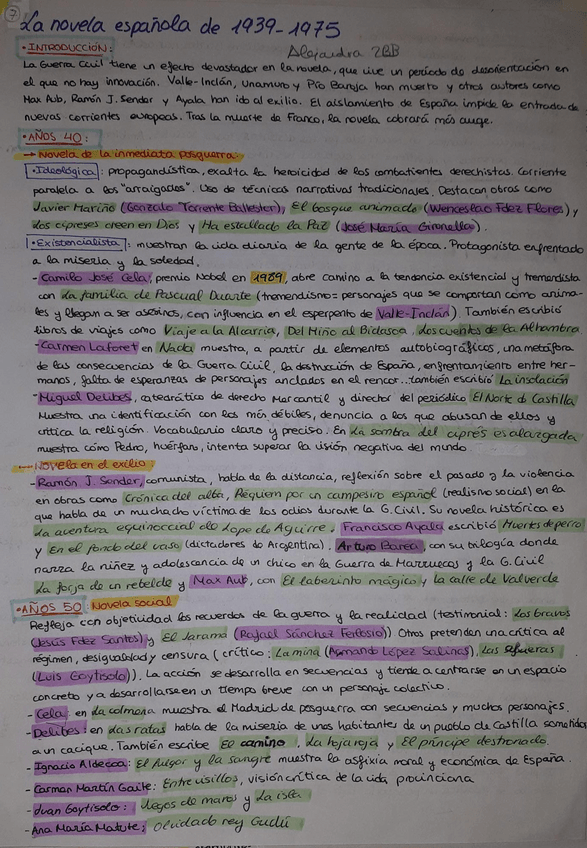 7
La novela española de 1939-1975
• INTRODUCCIÓN: Alejandra 2BB
La Guerra Civil tiene un efecto devastador en la novela, que vive un período de desorientación en
el que no hay innovación. Valle-Inclán, Unamuno y Pío Baroja han muerto y otros autores como
Max Aub, Ramón J. Sender y Ayala han ido al exilio. El aislamiento de España impide la entrada de
nuevas corrientes europeas. Tras la muerte de Franco, la novela cobrará más auge.
• AÑOS 40:
→ Novela de la inmediata posguerra:
• Ideológica: propagandística, exalta la heroicidad de los combatientes derechistas. Corriente
paralela a los "arraigados". Uso de técnicas narrativas tradicionales. Destacan obras como
Javier Mariño (Gonzalo Torrente Ballester), El bosque animado (Wenceslao Fdez Flores) y
Los cipreses creen en Dios y Ha estallado la Paz (José María Gironella).
• Existencialista: muestran la vida diaria de la gente de la época. Protagonista enfrentado
a la miseria y la soledad.
- Camilo José Cela, premio Nobel en 1989, abre camino a la tendencia existencial y tremendista
con La familia de Pascual Duarte (tremendismo= personajes que se comportan como anima-
les y llegan a ser asesinos, con influencia en el esperpento de Valle-Inclán). También escribió
libros de viajes como Viaje a la Alcarria, Del Miño al Bidasoa, Los cuentos de la Alhambra
- Carmen Laforet en Nada muestra, a partir de elementos autobiográficos, una metáfora
de las consecuencias de la Guerra Civil, la destrucción de España, enfrentamiento entre her-
manos, falta de esperanzas de personajes anclados en el rencor...también escribió La insolación
- Miguel Delibes, catedrático de derecho Mercantil y director del periódico El Norte de Castilla
Muestra una identificación con los más débiles, denuncia a los que abusan de ellos y
critica la religión. Vocabulario claro y preciso. En La sombra del ciprés es alargada
muestra cómo Pedro, huérfano, intenta superar la visión negativa del mundo
→ Novela en el exilio:
- Ramón J. Sender, comunista, habla de la distancia, reflexión sobre el pasado y la violencia
en obras como Crónica del alba, Réquiem por un campesino español (realismo social) en la
que habla de un muchacho víctima de los odios durante la G. Civil. Su novela histórica es
La aventura equinoccial de Lope de Aguirre. Francisco Ayala escribió Muertes de perro
y En el fondo del vaso (dictadores de Argentina). Arturo Barea, con su trilogía donde
narra la niñez y adolescencia de un chico en la Guerra de Marruecos y la G. Civil
La forja de un rebelde y Max Aub, con El laberinto mágico y la calle de Valverde
• AÑOS 50: Novela social
Refleja con objetividad los recuerdos de la guerra y la realidad (testimonial: Los bravos
(Jesús Fdez Santos) y El Jarama (Rafael Sánchez Ferlosio)) Otros pretenden una crítica al
régimen, desigualdad y censura (crítico: La mina (Armando López Salinas), Las afueras
(Luis Goytisolo)). La acción se desarrolla en secuencias y tiende a centrarse en un espacio
concreto y a desarrollarse en un tiempo breve con un personaje colectivo.
- Cela, en La colmena muestra el Madrid de posguerra con secuencias y muchos personajes.
- Delibes: en Las ratas habla de la miseria de unos habitantes de un pueblo de Castilla sometidos
a un cacique. También escribe El camino, La hoja roja y El príncipe destronado.
- Ignacio Aldecoa: El fulgor y la sangre muestra la asfixia moral y económica de España.
- Carmen Martín Gaite: Entre visillos, visión crítica de la vida provinciana
- Juan Goytisolo: Juegos de manos y La isla
- Ana María Matute: Olvidado rey Gudú